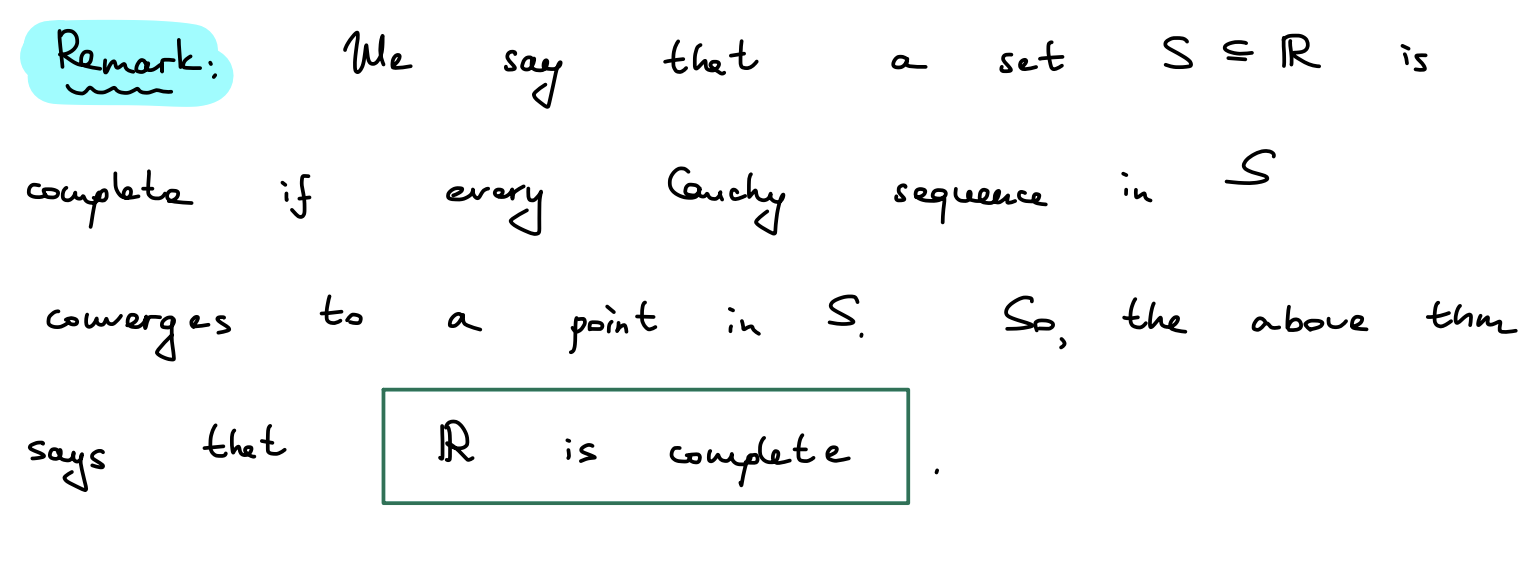 Remark: We say that a set S ⊆ ℝ is
complete if every Cauchy sequence in S
converges to a point in S. So, the above thm
says that ℝ is complete.